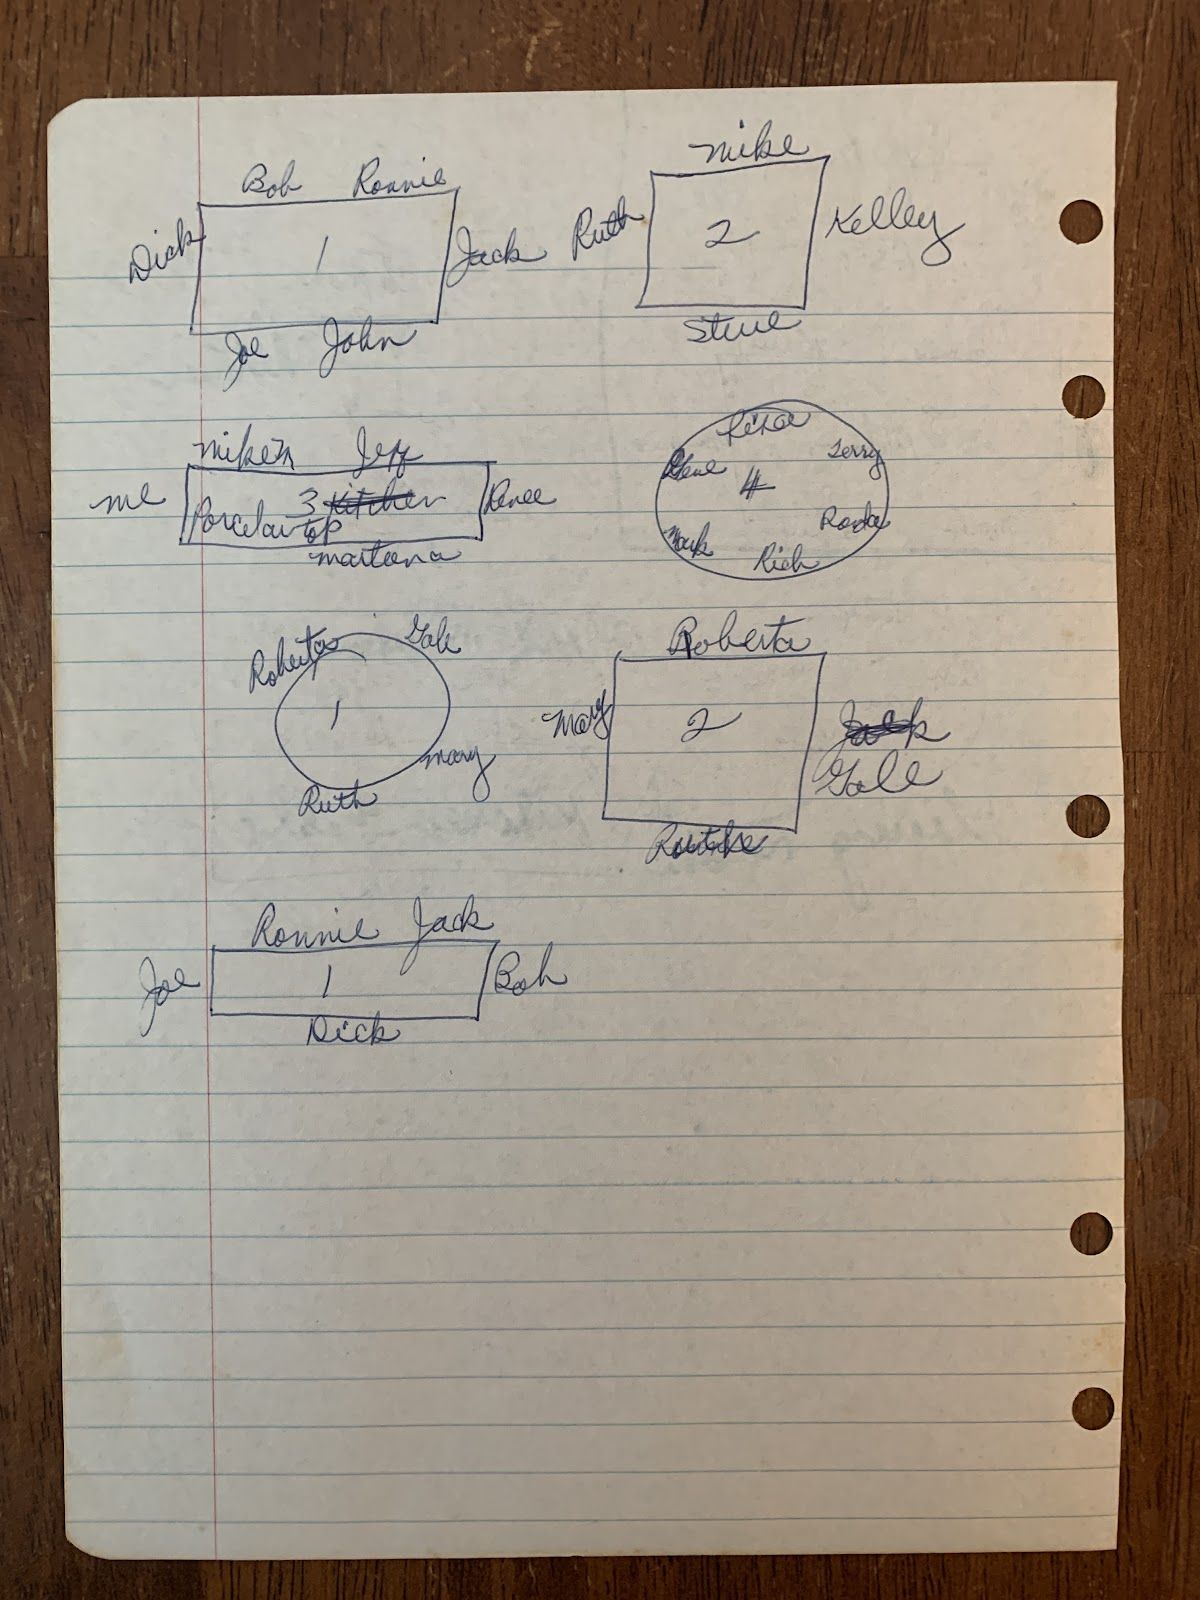 Bob Ronnie
Dick 1 Jack
Joe John
Mike
Ruth 2 Kelley
Steve
Mike M Jeff
me 3 Kitchen Renee
Porcelain top
Terry
Gene 4
Mark Rich
Roberta Gale
1
Mary
Ruth
Roberta
Mary 2 Jack
Gale
Ronnie Jack
Joe 1 Bob
Dick